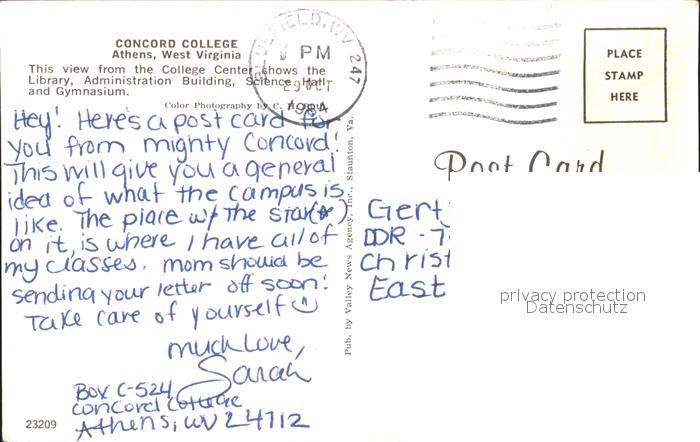 CONCORD COLLEGE
Athens, West Virginia
This view from the College Center shows the
Library, Administration Building, Science Hall
and Gymnasium.
Color Photography by C.
BLUEFIELD, WV 247
PM
29 OCT
1984
PLACE
STAMP
HERE
Post Card
Hey! Here's a post card for
you from mighty Concord!
This will give you a general
idea of what the campus is
like. The place w/ the star(★)
on it, is where I have all of
my classes. mom should be
sending your letter off soon!
Take care of yourself ☺
much Love,
Sarah
Box C-524
Concord College
Athens, WV 24712
23209
Pub. by Valley News Agency, Inc., Staunton, Va.
Gert
DDR - 7
Christ
East
privacy protection
Datenschutz